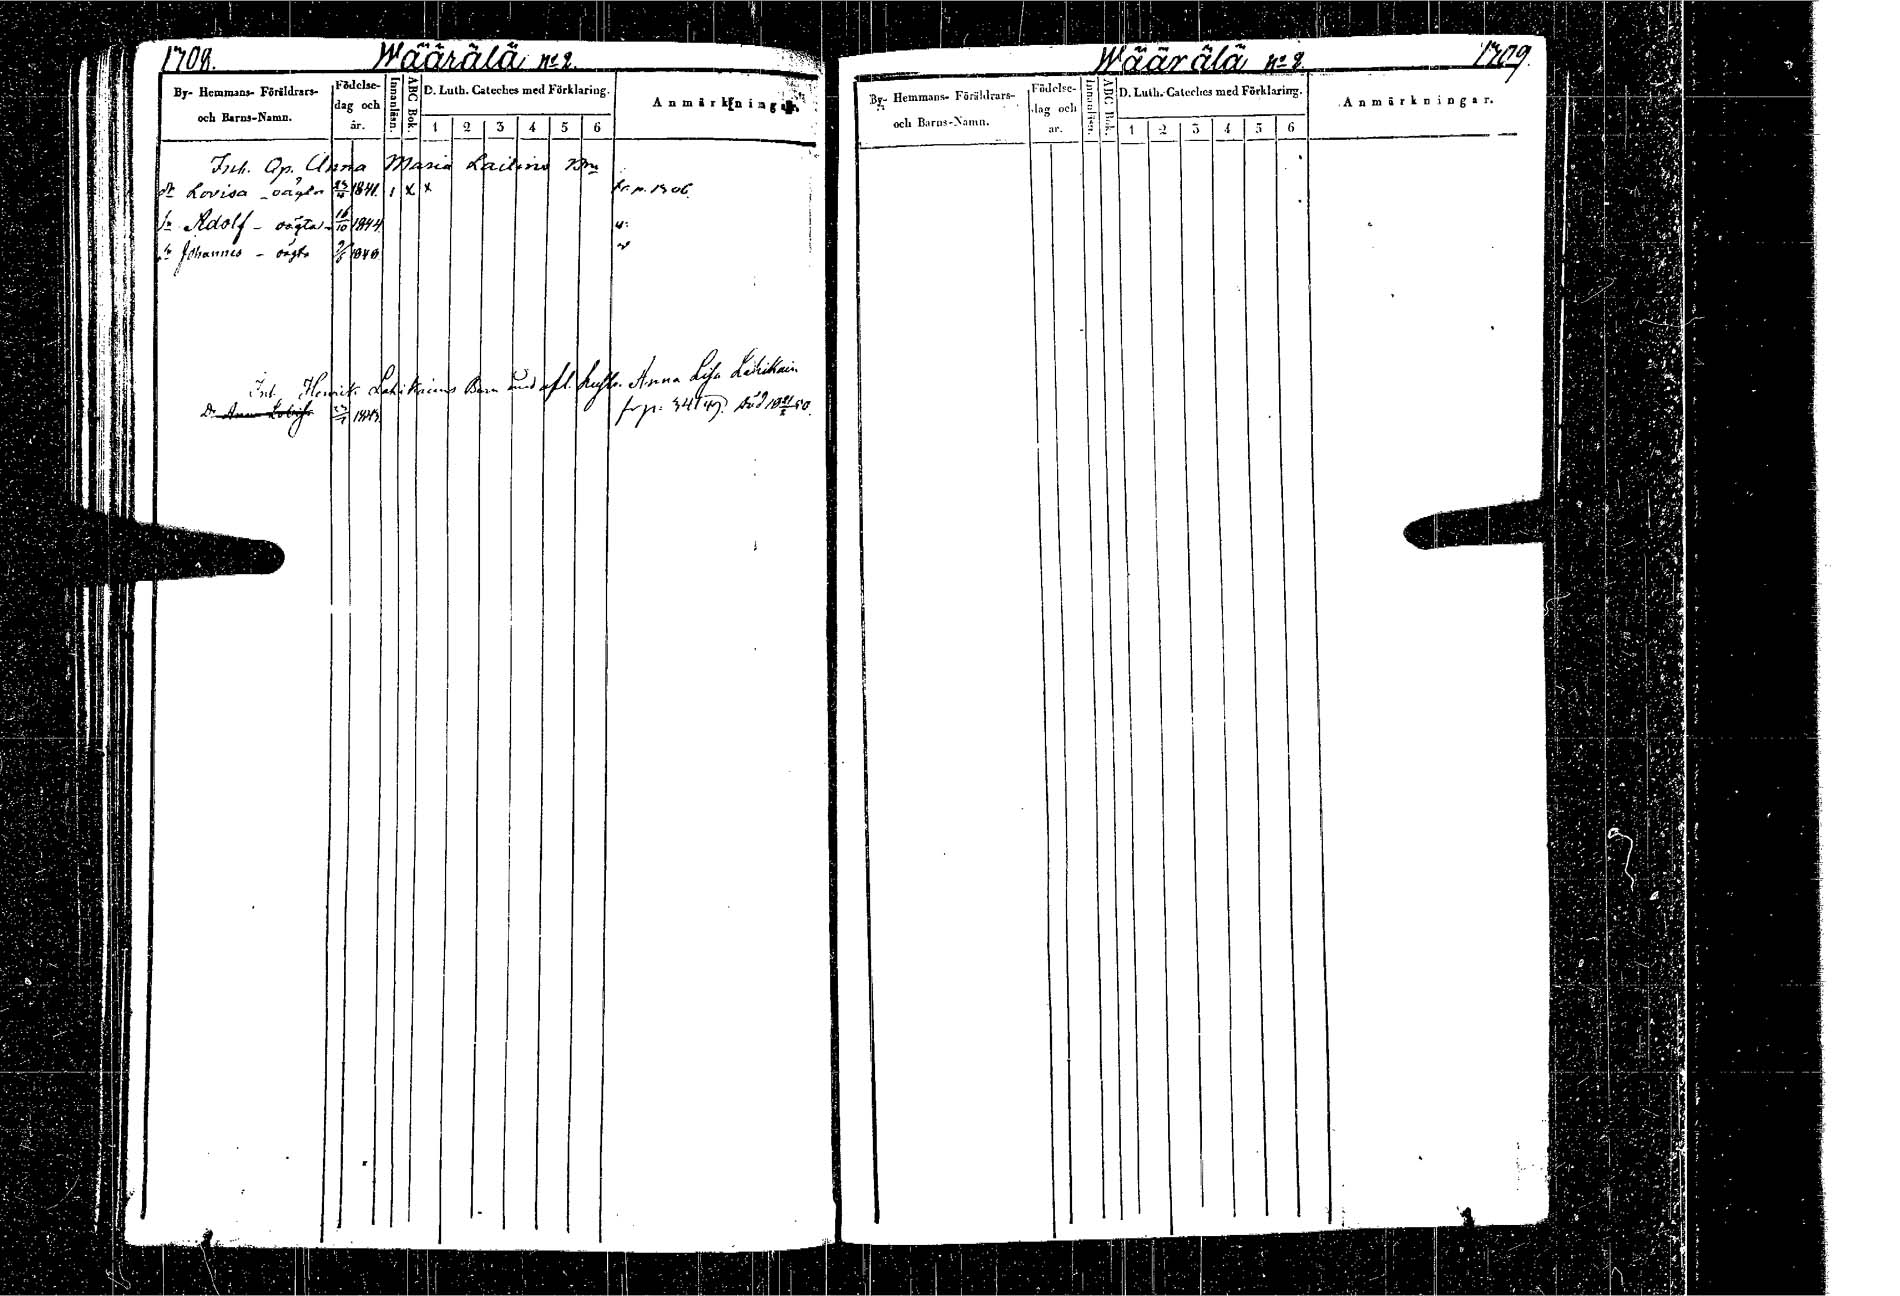 1708.
Wäärälä No 2.
By- Hemmans- Föräldrars-
och Barns-Namn.
Födelse-
dag och
år.
Innanläsn.
ABC Bok.
D. Luth. Cateches med Förklaring.
1 2 3 4 5 6
Anmärkningar.
Inh. Op. Anna Maria Lailins Brn
Dr Lovisa - oägta 1841. 1 x x fr. p. 1306.
Sn Adolf - oägta 16/10 1844
Sn Johannes - oägta
Inh. Henrik Lahikains Barn med afl. hustr. Anna Lisa Lahikain
Dr Anna Lovisa fr p. Död
Wäärälä No 2.
1709.
By- Hemmans- Föräldrars-
och Barns-Namn.
Födelse-
dag och
år.
Innanläsn.
ABC Bok.
D. Luth. Cateches med Förklaring.
1 2 3 4 5 6
Anmärkningar.